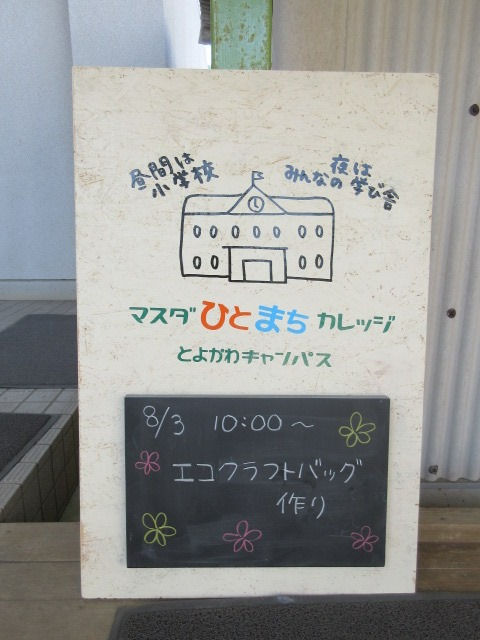 昼間は
小学校
夜は
みんなの学び舎
マスダひとまちカレッジ
とよかわキャンパス
8/3 10:00～
エコクラフトバッグ
作り